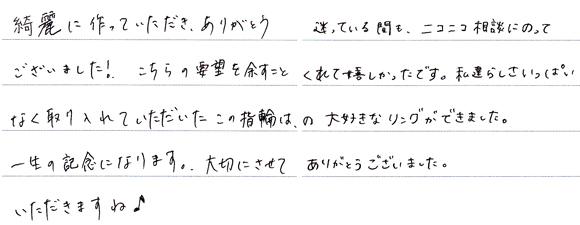 綺麗に作っていただき、ありがとう
ございました！ こちらの要望を余すこと
なく取り入れていただいたこの指輪は、
一生の記念になります。大切にさせて
いただきますね♪
迷っている間も、ニコニコ相談にのって
くれて嬉しかったです。私達らしさいっぱい
の大好きなリングができました。
ありがとうございました。